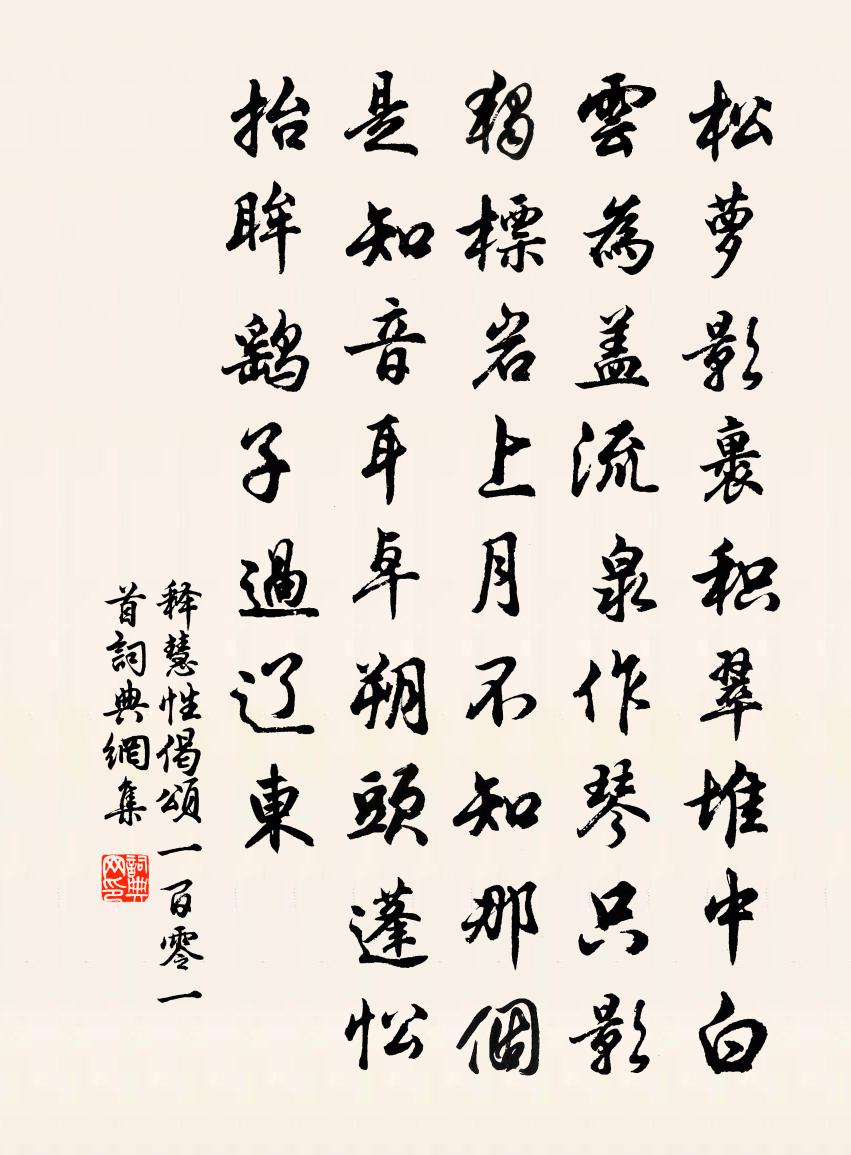 松萝影裹积翠堆中白
雲為盖流泉作琴只影
獨標岩上月不知那個
是知音耳卓朔頭蓬松
抬眸鷂子過辽東
释慧性偈頌一百零一
首詞典網集
詞典网印